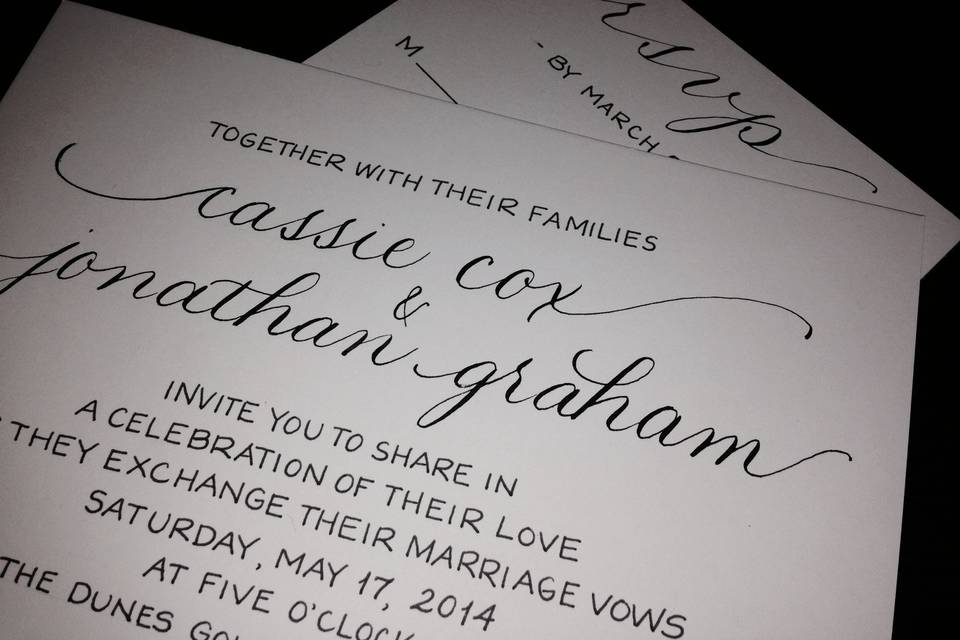 rsvp
M
- BY MARCH
TOGETHER WITH THEIR FAMILIES
cassie cox
&
jonathan graham
INVITE YOU TO SHARE IN
A CELEBRATION OF THEIR LOVE
THEY EXCHANGE THEIR MARRIAGE VOWS
SATURDAY, MAY 17, 2014
AT FIVE O'CLOCK
THE DUNES